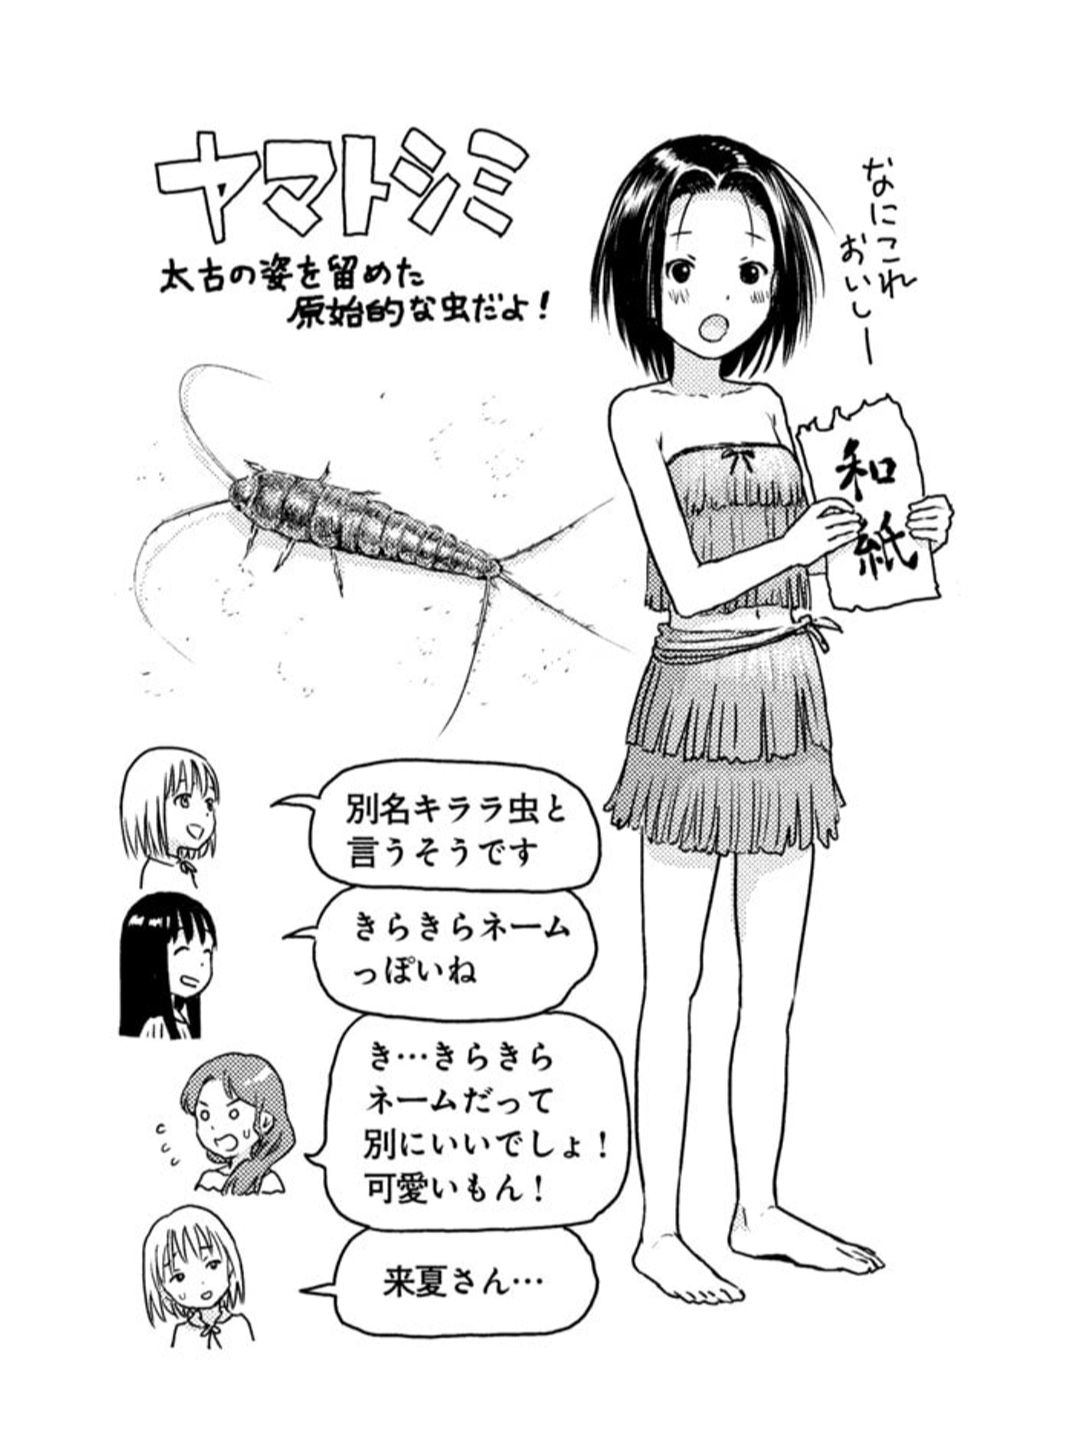 ヤマトシミ
太古の姿を留めた
原始的な虫だよ！
なにこれ
おいしー
和紙
別名キララ虫と
言うそうです
きらきらネーム
っぽいね
き…きらきら
ネームだって
別にいいでしょ！
可愛いもん！
来夏さん…